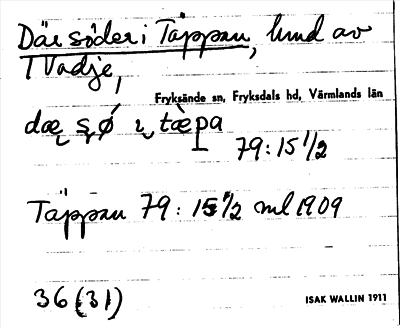 Där söder i Täppan, lund av
T Vadje,
Fryksände sn, Fryksdals hd, Värmlands län
79:15 1/2
Täppan 79:15 1/2 ml 1909
36 (31)
ISAK WALLIN 1911